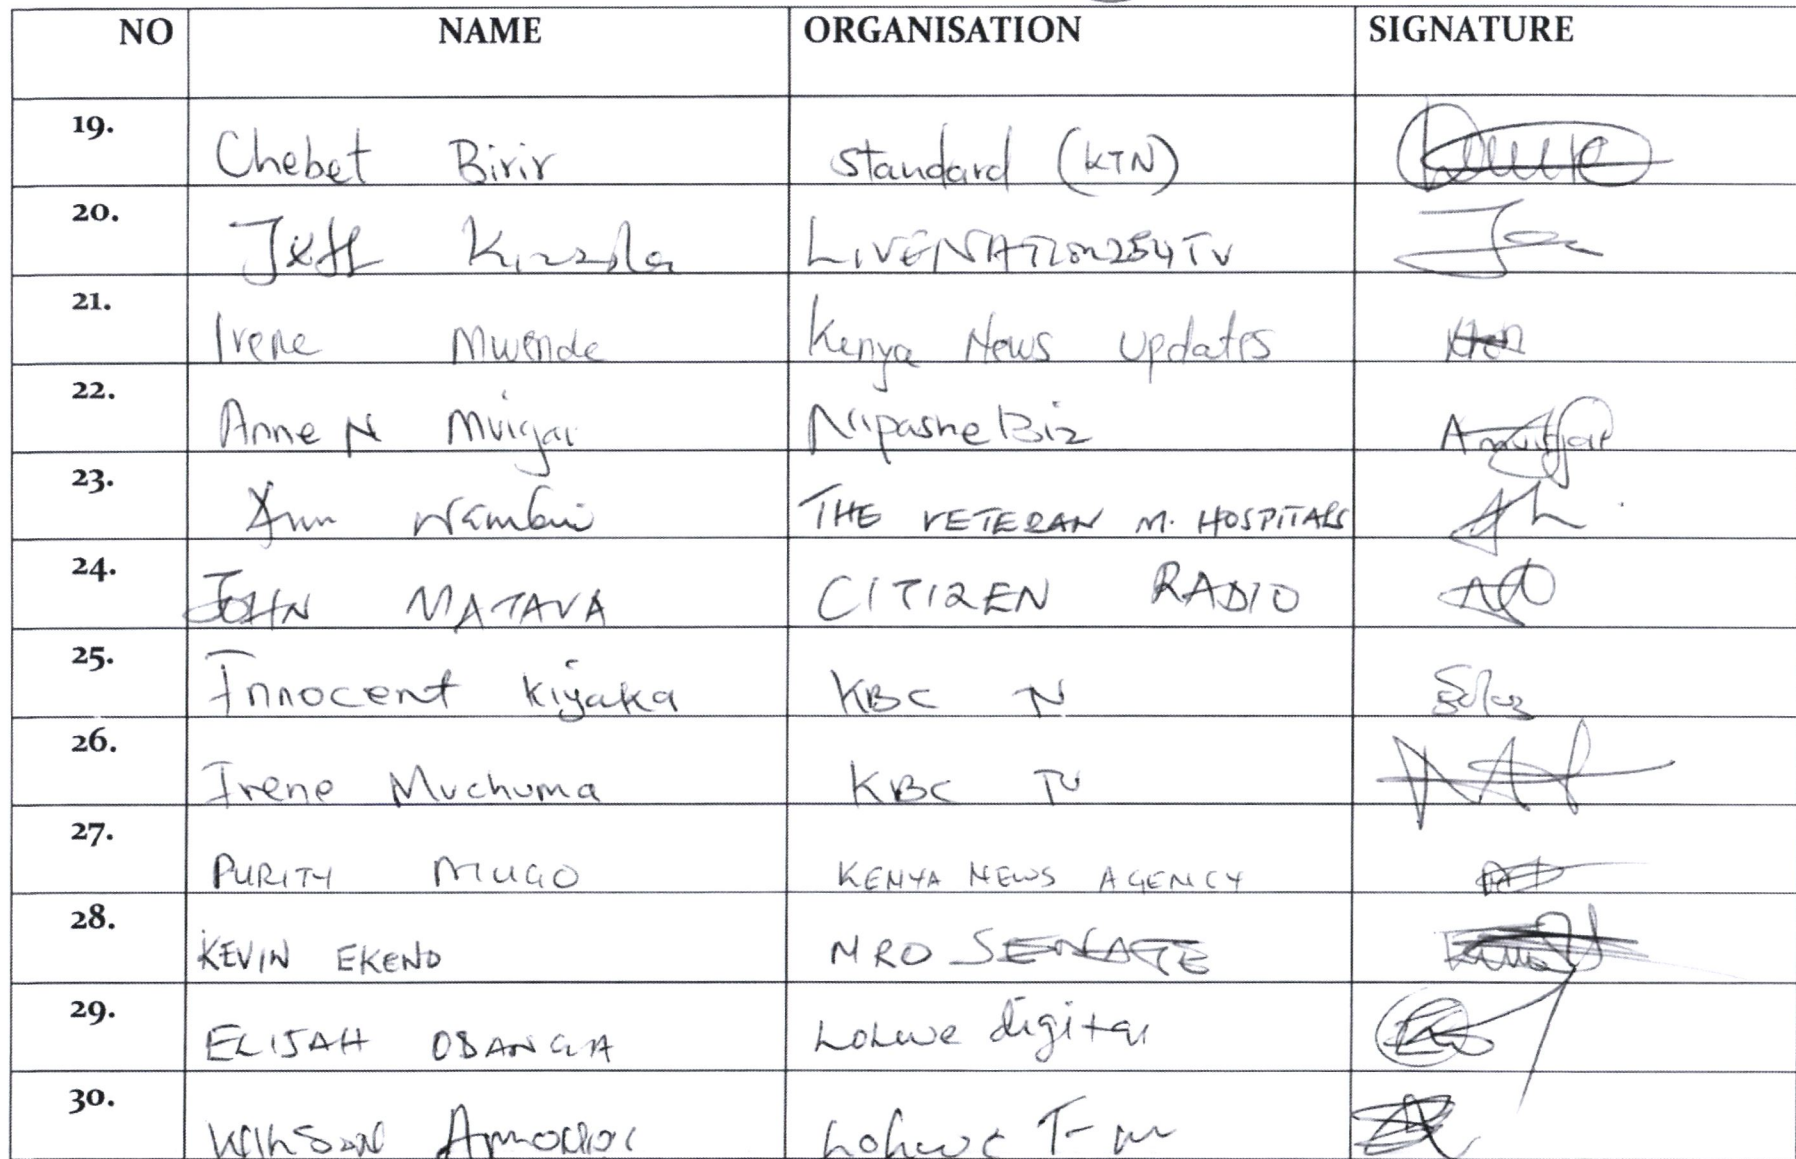 NO NAME ORGANISATION SIGNATURE
19. Chebet Birir Standard (KTN)
20. Jeff LIVENATION254TV
21. Irene Mwende Kenya News Updates
22. Anne N Muigai Nipashe Biz
23. Ann Wambui THE VETERAN M. HOSPITALS
24. JOHN MATAVA CITIZEN RADIO
25. Innocent Kiyaka KBC TV
26. Irene Muchuma KBC TV
27. PURITY MUGO KENYA NEWS AGENCY
28. KEVIN EKENO MRO SENATE
29. ELIJAH OBANGA Lolwe digital
30. WILSON Lolwe Fm